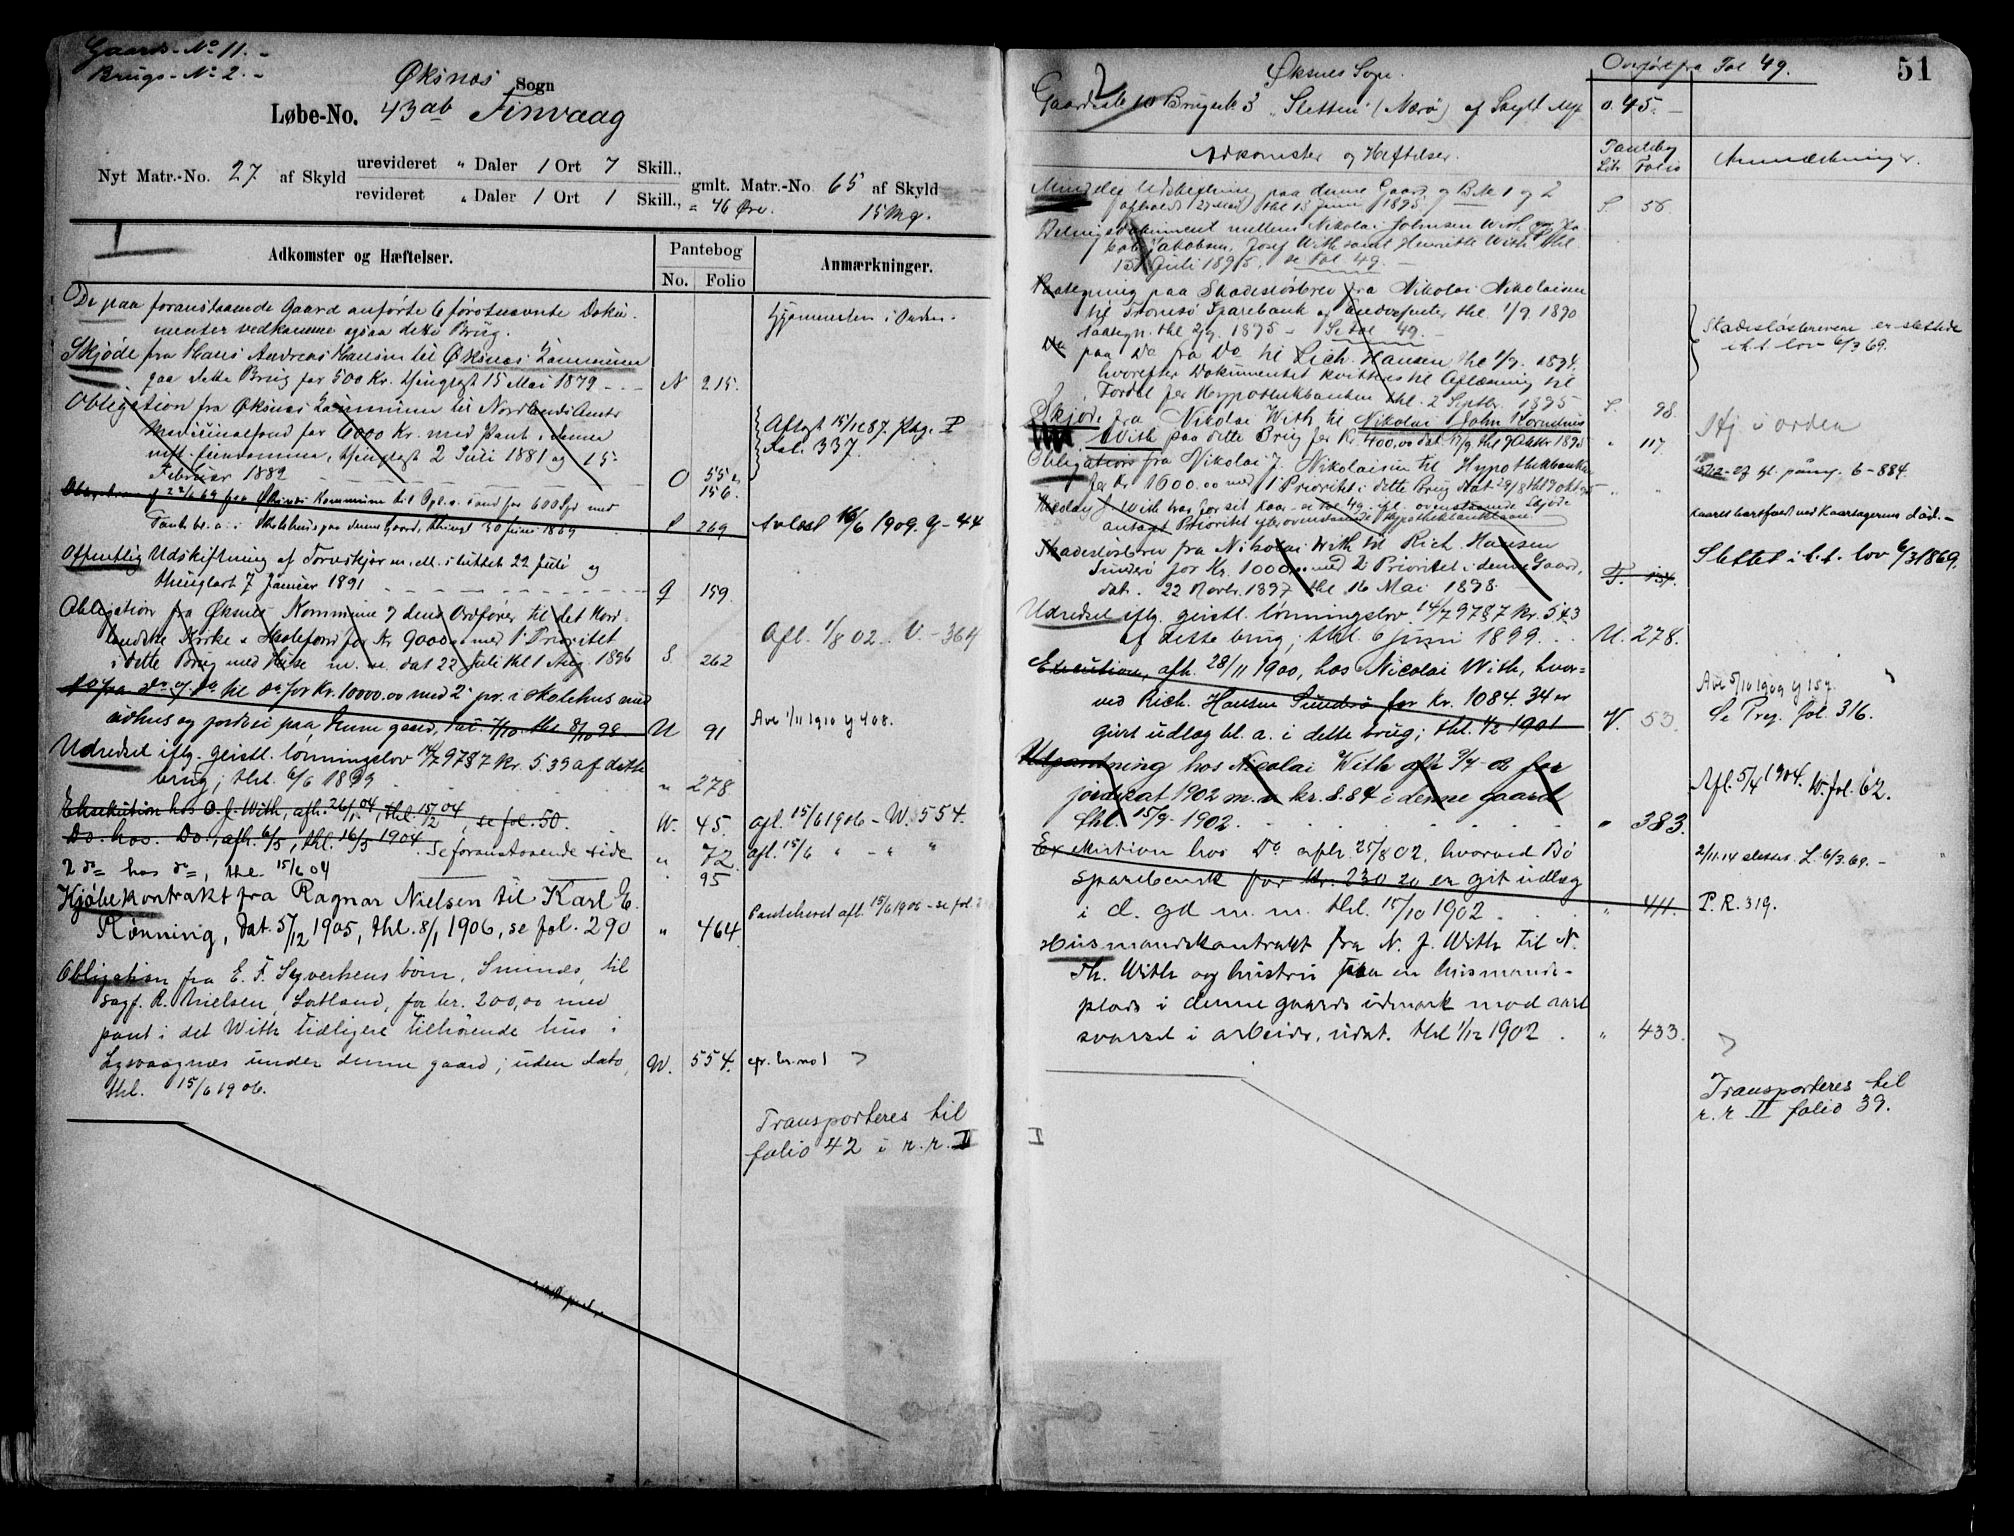 Gaards-No 11. -
Brugs-No 2. -
Øksnes Sogn
Løbe-No. 43ab Finvaag
Nyt Matr.-No. 27 af Skyld
urevideret " Daler 1 Ort 7 Skill.,
revideret " Daler 1 Ort 1 Skill.,
gmlt. Matr.-No. 65 af Skyld
= 46 Øre. 15 Mg.
I
Adkomster og Hæftelser.
Pantebog
No. Folio
Anmærkninger.
De paa foranstaaende Gaard anførte 6 førstnævnte Doku-
menter vedkomme ogsaa dette Brug. Hjemmelen i Orden.
Skjøde fra Hans Andreas Hansen til Øksnes Kommune
paa dette Brug for 500 Kr. thinglæst 15 Mai 1879 - . . N 215.
Obligation fra Øksnes Kommune til Nordlands Amts
Medicinalfond for 6000 Kr. med Pant i denne
Eiendommen, thinglæst 2 Juli 1881 og 15-
Februar 1882 O 55 156.
Aflyst 15/11 87. Ptbg. P
Fol. 337.
fra Øksnes Kommune til Opl. fond for 600 Spd med
Pant bl. a. i Skolehus paa denne Gaard, thingl. 30 Juni 1869 P 269 Avlæst 16/6 1909. Y-44
Offentlig Udskiftning af Torvskjær m. m. sluttet 22 Juli og
thinglæst 7 Januar 1891 Q 159.
Obligation fra Øksnes Kommune v dens Ordfører til det Nord-
landske Kirke & Skolefond for Kr. 9000 med 1 Prioritet
i dette Brug med Huse m. m. dat 22 Juli thl 1 Aug. 1896 S. 262
Afl. 1/8 02. V. - 364
Do fra do og do til do for Kr. 10000.00 med 2 pr. i skolehus med
udhus og jordvei paa denne gaard, dat. 7/10 thl 8/10 98 U 91
Avl 1/11 1910 Y 408.
Udredsel iflg. geistl. lønningslov 14/7 97 § 7 kr. 5.39 af dette
brug; thl. 6/6 1899 " 278
Eksekution hos O. J. With, afh. 26/1 04, thl. 15/2 04, se fol. 50. W. 45. afl. 15/6 1906 - W. 554.
Do. hos Do., afh. 6/5, thl. 16/5 1904. Se foranstaaende side " 72 afl. 15/6 " - " "
2 do hos do, thl. 15/6 04 " 95
Kjøbekontrakt fra Ragnar Nielsen til Karl E.
Rønning, dat. 5/12 1905, thl. 8/1 1906, se fol. 290 " 464
Panteheftet afl. 15/6 1906 - se fol.
Obligation fra E. F. Syvertsens børn, Smines, til
sagf. R. Nielsen, Sortland, for kr. 200,00 med
pant i det With tidligere tilhørende hus i
Lysvaagnes under denne gaard; uden dato,
thl. 15/6 1906. W. 554. cfr. br. no 1
Transporteres til
folio 42 i r. r. II
51
Øksnes Sogn.
Overført fra Fol 49.
2
Gaards 10 Brugs 3 "Sletten" (Nærø) af Skyld Mk 0.45.-
Adkomster og Heftelser.
Pantebog
Litr Folio
Anmærkninger.
Mindelig Udskiftning paa denne Gaard og B.No 1 og 2
(afholdt 27 Mai) thl 15 Juni 1895. S. 56.
Delingsdokument mellem Nikolai Johnsen With og Ja-
kob Jakobsen, Josef With samt Henrik With thl.
15 Juli 1895. se Fol. 49. -
Paategning paa Skadesløsbrev fra Nikolai Nikolaisen
til Tromsø Sparebank og Andresen thl. 1/9 1890
paategn. thl 2/9. 1895 - Se fol 49. -
Do paa Do fra Do til Rich. Hansen thl 1/9. 1894.
hvorefter Dokumentet kvitteres til Aflæsning til
Fordel for Hypothekbanken thl. 2 Septbr. 1895 S. 98.
Skadesløsbrevene er slettede
i h.t. lov 6/3 69.
Skjøde fra Nikolai With til Nikolai John Kornelius
With paa dette Brug for Kr 400,00 dat 17/9 thl 9 Oktbr 1895 " 117.
Hj i orden
Obligation fra Nikolai J. Nikolaisen til Hypothekbanken
for Kr. 1600.00 med 1 Prioritet i dette Brug dat 29/8 thl 9 okt 95 " "
Nicolay J. With har forset paa - se fol 49. iflg. ovenstaaende Skjøde
antagt Prioritet efter ovenstaaende Hypothekbanklaan.
Skadesløsbrev fra Nikolai With til Rich. Hansen
Sunderø for Kr. 1000,00 med 2 Prioritet i denne Gaard,
dat. 22 Novbr. 1897 thl 16 Mai 1898. T. 134.
Slettet i h.t. lov 6/3 1869.
Udredsel iflg. geistl. lønningslov 14/7 97 § 7 kr. 5.43
af dette brug; thl. 6 juni 1899. . . U. 278.
Execution, afh. 28/11 1900, hos Nicolai With, hvor-
ved Rich. Hansen Sunderø for kr. 1084.34 er
givet udlæg bl. a. i dette brug; thl. 1/2 1901 V. 53.
Avl 5/10 1909 Y 157.
Se Preg. fol. 316.
Udpantning hos Nicolai With afh 9/4-02 for
jordskat 1902 m. v. kr. 8.84 i denne gaard
thl. 15/9 1902. " 383.
Afl. 5/4 1904. W. fol. 62.
Exekution hos Do afh. 25/8 02, hvorved Bø
sparebank for kr. 230 20 er git udlæg
i d. gd m. m. thl. 15/10 1902 . " 411.
2/11.14 slettes. L. 6/3 69. -
P. R. 319.
Husmandskontrakt fra N. J. With til N.
Th. With og hustru paa en husmands-
plads i denne gaards udmark mod aarl
svarsel i arbeide, udat. thl 1/12 1902 . " 433.
Transporteres til
r. r II folio 39.